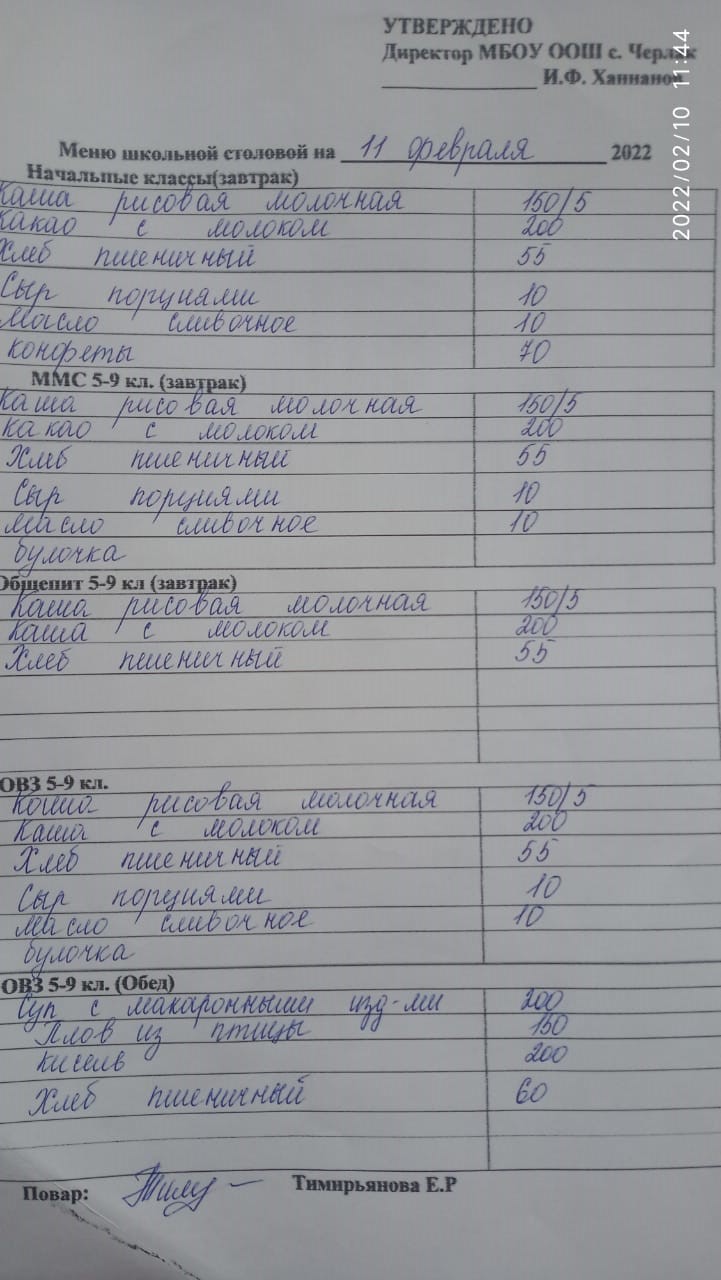 УТВЕРЖДЕНО
Директор МБОУ ООШ с. Черлак
И.Ф. Ханнанов
2022/02/10 11:44
Меню школьной столовой на 11 февраля 2022
Начальные классы(завтрак)
Каша рисовая молочная 150/5
Какао с молоком 200
Хлеб пшеничный 55
Сыр порциями 10
Масло сливочное 10
конфеты 70
ММС 5-9 кл. (завтрак)
Каша рисовая молочная 150/5
какао с молоком 200
Хлеб пшеничный 55
Сыр порциями 10
масло сливочное 10
булочка
Общепит 5-9 кл (завтрак)
Каша рисовая молочная 150/5
Каша с молоком 200
Хлеб пшеничный 55
ОВЗ 5-9 кл.
Каша рисовая молочная 150/5
Каша с молоком 200
Хлеб пшеничный 55
Сыр порциями 10
масло сливочное 10
булочка
ОВЗ 5-9 кл. (Обед)
Суп с макаронными изд-ми 200
Плов из птицы 150
кисель 200
Хлеб пшеничный 60
Повар: Тимирьянова Е.Р